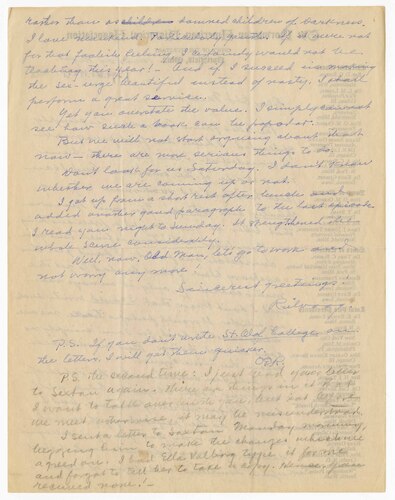 rather than as children damned children of darkness.
I love you
for that I certainly would not be
teaching this year! And if I succeed in making
the sex-urge beautiful instead of nasty, I shall
perform a great service.
Yet you overstate the value. I simply cannot
see how such a book can be popular.
But we will not start arguing about that
now — there are more serious things to do.
Don't look for us Saturday. I don't know
whether we are coming up or not.
I got up from a short rest after lunch and
added another good paragraph to the last episode
I read you night to Sunday. It strengthened the
whole scene considerably.
Well, now, Old Man, let's go to work and
not worry any more!
Sincerest greetings,
P.S. If you don't write St. Olaf College on
the letters, I will get them quicker.
OER.
P.S. the second time: I just your letter
to Sexton again. There are things in it that
I want to talk over with you, but not before
we meet otherwise, it may be misunderstood.
I sent a letter to Saxton Monday morning,
begging him to make the changes whereon we
agreed on. I had Ella Valborg type it for me
and forgot to tell her to take a copy. Hence, you
received none! —